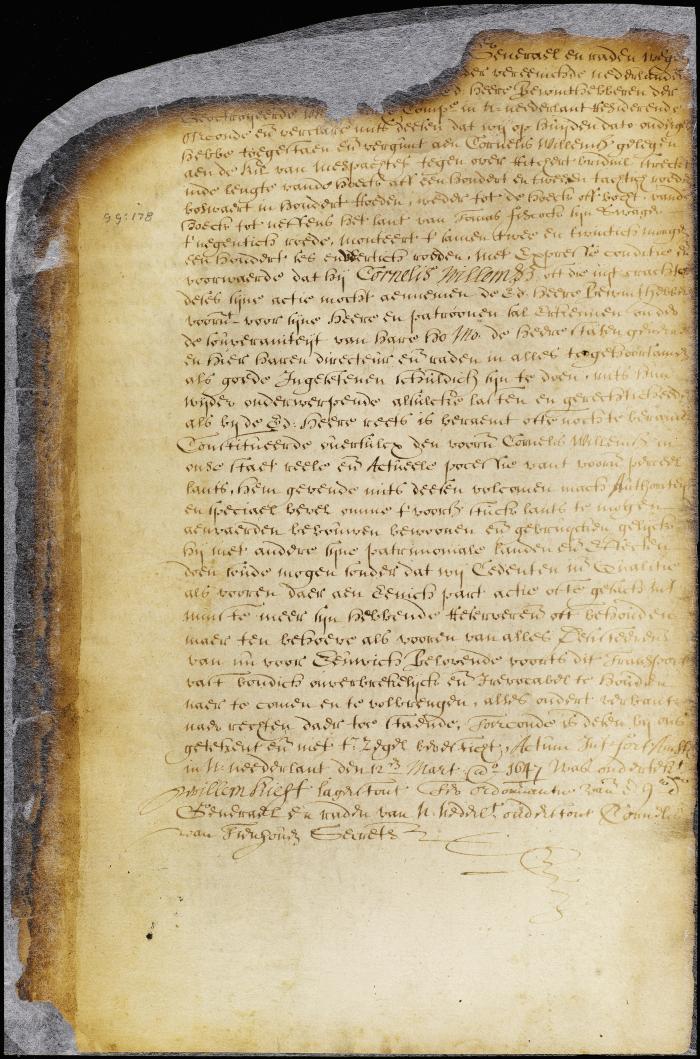 Generael en raden wegen
der vereenichde nederlanden
d heere Bewinthebberen der
Geoctroijeerde Comp^e in N. nederlant Residerende
oirconde en verclare mitz deesen dat wij op huijden dato onderges
hebbe toegestaen en vergunt aen Cornelis Willemsz gelegen
aen de Kil van Mespaetses tegen over Ritchert bridnil streckt
inde lengte vande hoeck aff een hondert en tweeen tachtig roede
boswaert in hondert Roeden, weder tot de hoeck off bocht vande
hoeck tot neffens het lant van Tomas fiscock sijn Swager
t'negentich roede, monteert t samen twee en twintich morgen
een hondert ses en dertich roeden, Met Expresse conditie en
voorwaerde dat hij Cornelis Willemsz oft die int crachte
deses sijne actie mocht aennemen de Ed. heere Bewinthebbere
voorn^t voor sijne Heere en patroonen sal Erkennen onder
de souveraniteijt van hare Ho: Mo: de heere staten generael
en hier haren directeur en raden in alles te gehoorsamen
als goede Ingesetenen schuldich sijn te doen, mits hun
wijder onderwerpende alsulcke lasten en gerechticheden
als bij de Ed: heere reets is beraemt ofte noch te beramen
Constitueerde oversulcx den voorn Cornelis Willemsz in
onse staet reele en Actueele possessie vant voorn perceel
lants, hem gevende mits deesen volcomen macht Authoriteijt
en speciael bevel omme t voorsz stuck lants te mogen
aenvaerden bebouwen bewoonen en gebruijcken gelijck
hij met andere sijne patrimoniale landen en Effecten
doen soude mogen sonder dat wij Cedenten in qualite
als vooren daer aen Eenich part actie ofte gesach int
minste meer sijn hebbende Reserveren oft behoudende
maer ten behoeve als vooren van alles desisteerende
van nu voor Eeuwich Belovende voorts dit Transport
vast bondich onverbreckelijck en Irevocabel te houden
naer te comen en te volbrengen, alles ondert verbant
naer rechten daer toe staende, T'oirconde is desen bij ons
geteijkent en met t' Zegel bevesticht, Actum Int fort Amst
in N: Neederlant den 12^en Mart A^o 1647 Was onderteijk^t
Willem Kieft lager stont Ter Ordonnantie van d
Generael en raden van N. Nederl^t onderstont Cornelis
van Tienhoven Secret^s
gg:178